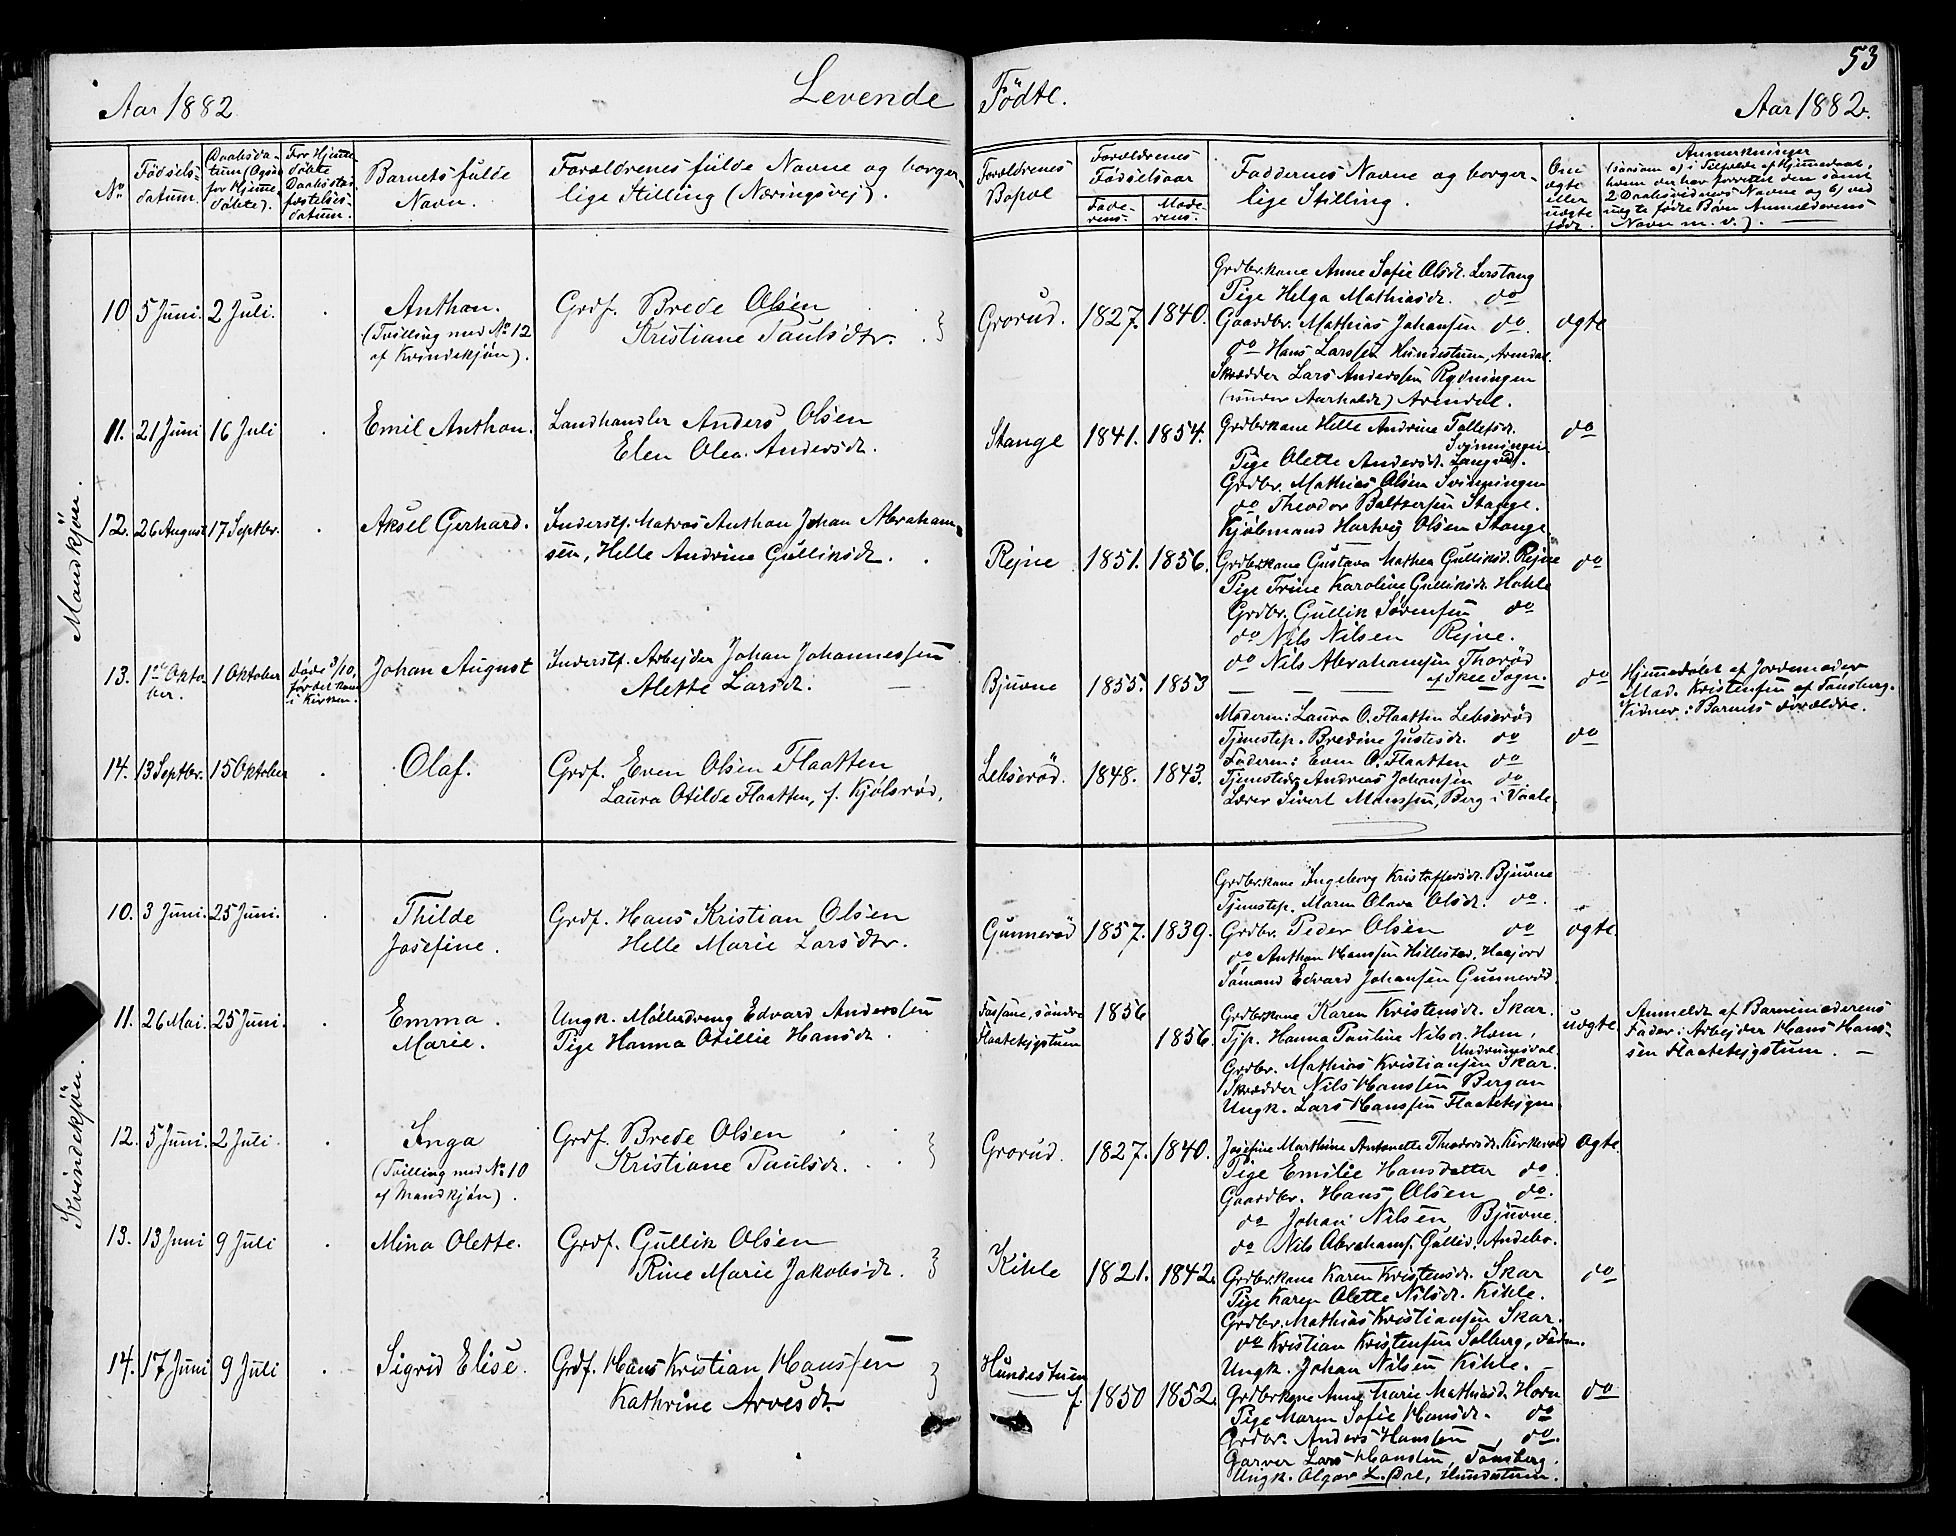 53
Aar 1882
Levende
Födte.
Aar 1882.
No.
Födsels-
datum.
Daabsda-
tum (Ogsaa
for Hjemme-
döbte).
For Hjemme-
döbte
Daabsstad-
fæstelses-
datum.
Barnets fulde
Navn.
Forældrenes fulde Navne og borger-
lige Stilling (Næringsvej).
Forældrenes
Bopæl
Forældrenes
Födselsaar
Fade-
rens.
Mode-
rens.
Faddernes Navne og borger-
lige Stilling.
Om
ægte
eller
uægte
född.
Anmerkninger
(saasom a) i Tilfælde af Hjemmedaab,
hvem der har forrettet den samt
2 Daabsvidners Navne og b) ved
uægte födte Börn Anmelderens
Navn m. v.).
Mandkjön.
10. 5 Juni. 2 Juli.
Anthon.
(Tvilling med No 12
af Kvindekjön).
Grdf. Brede Olsen
Kristiane Paulsdtr.
Grorud. 1827. 1840.
Grdbr.kone Anne Sofie Olsdt. Lerstang
Pige Helga Mathiasdt. do
Gaardbr. Mathias Johansen do.
do Hans Larssen Hundestuen, Arendal.
Skrædder Lars Anderssen Rydningen
(under Aarholdt) Arendal.
ægte
11. 21 Juni 16 Juli
Emil Anthon.
Landhandler Anders Olsen
Elen Olea Andersdt.
Stange 1841. 1854.
Grdbrkone Helle Andrine Tollefsdt.
Svinningen
Pige Olette Andersdt. Langved.
Grdbr. Mathias Olsen Svinningen
do Theodor Baltsersen Stange.
Kjöbmand Hartvig Olsen Stange
do
12. 26 August 17 Septbr.
Aksel Gerhard.
Inderstf. Matros Anthon Johan Abraham-
sen, Helle Andrine Gulliksdt.
Rejne 1851. 1856.
Grdbr.kone Gustava Mathea Gulliksd. Rejne
Pige Trine Karoline Gulliksdt. Hohle
Grdbr. Gullik Sörensen do
do Nils Nilsen Rejne.
do Nils Abrahamsen Thoröd
af Skee Sogn.
do
13. 1ste Okto-
ber.
1 Oktober
döde 3/10,
för det kom
i Kirken.
Johan August
Inderstf. Arbejder Johan Johannessen
Alette Larsdt.
Bjuvne 1855. 1853
do
Hjemmedöbt af Jordemoder
Mad. Kristensen af Tönsberg.
Vidner: Barnets Forældre.
14. 13 Septbr. 15 Oktober
Olaf.
Grdf. Even Olsen Flaatten
Laura Otilde Flaatten, f. Kjölsröd.
Lebseröd. 1848. 1843.
Moderen: Laura O. Flaatten Lebseröd
Tjenestep. Bredine Justesdt. do
Faderen: Even O. Flaatten do
Tjenestedr. Andreas Johansen do
Lærer Sivert Monssen, Berg i Vaale.
do
Kvindekjön.
10. 3 Juni. 25 Juni.
Thilde
Josefine.
Grdf. Hans Kristian Olsen
Helle Marie Larsdtr.
Gunneröd 1857. 1839.
Grdbr.kone Ingeborg Kristoffersdt. Bjuvne
Tjenestep. Maren Olava Olsdt. do.
Grdbr. Peder Olsen do
do Anthon Hanssen Hillestad,
Sömand Edvard Johansen Gunneröd.
ægte.
11. 26 Mai. 25 Juni.
Emma
Marie.
Ungk. Mölledreng Edvard Anderssen
Pige Hanna Otillie Hansdt.
Fossane, söndre 1856
Flaatehejstuen 1856.
Grdbr.kone Karen Kristensdt. Skar.
Tjp. Hanna Pauline Nilsd. Hem,
Undrumsdal.
Grdbr. Mathias Kristiansen Skar.
Skrædder Nils Hanssen Bergan
Ungk. Lars Hanssen Flaatehejgen.
uægte
Anmeldt af Barnemoderens
Fader: Arbejder Hans Hans-
sen Flaatehejstuen.
12. 5 Juni. 2 Juli.
Inga
(Tvilling med No 10
af Mandkjön).
Grdf. Brede Olsen
Kristiane Paulsdt.
Grorud. 1827. 1840.
Josefine Marthine Antonette Theodorsdt. Kirkevold
Pige Emilie Hansdatter do.
Gaardbr. Hans Olsen do.
do Johan Nilsen Bjuvne.
do Nils Abrahams. Gallis, Andebo.
ægte.
13. 13 Juni 9 Juli
Mina Olette.
Grdf. Gullik Olsen
Rine Marie Jakobsdt.
Kihle 1821. 1842.
Grdbr.kone Karen Kristensdt. Skar
Pige Karen Olette Nilsdt. Kihle.
Grdbr. Mathias Kristiansen Skar.
do Kristian Kristensen Solberg,
Ungk. Johan Nilsen Kihle.
do
14. 17 Juni 9 Juli
Sigrid Elise.
Grdf. Hans Kristian Hanssen
Kathrine Arvesdt.
Hundestuen
1850 1852.
Grdbr.kone Anne Marie Mathiasd. Horn
Pige Maren Sofie Hansdt. do
Grdbr. Anders Hanssen do.
Garver Lars Hanssen, Tönsberg.
Ungk. Olgar L. Dal, Hundestuen.
do